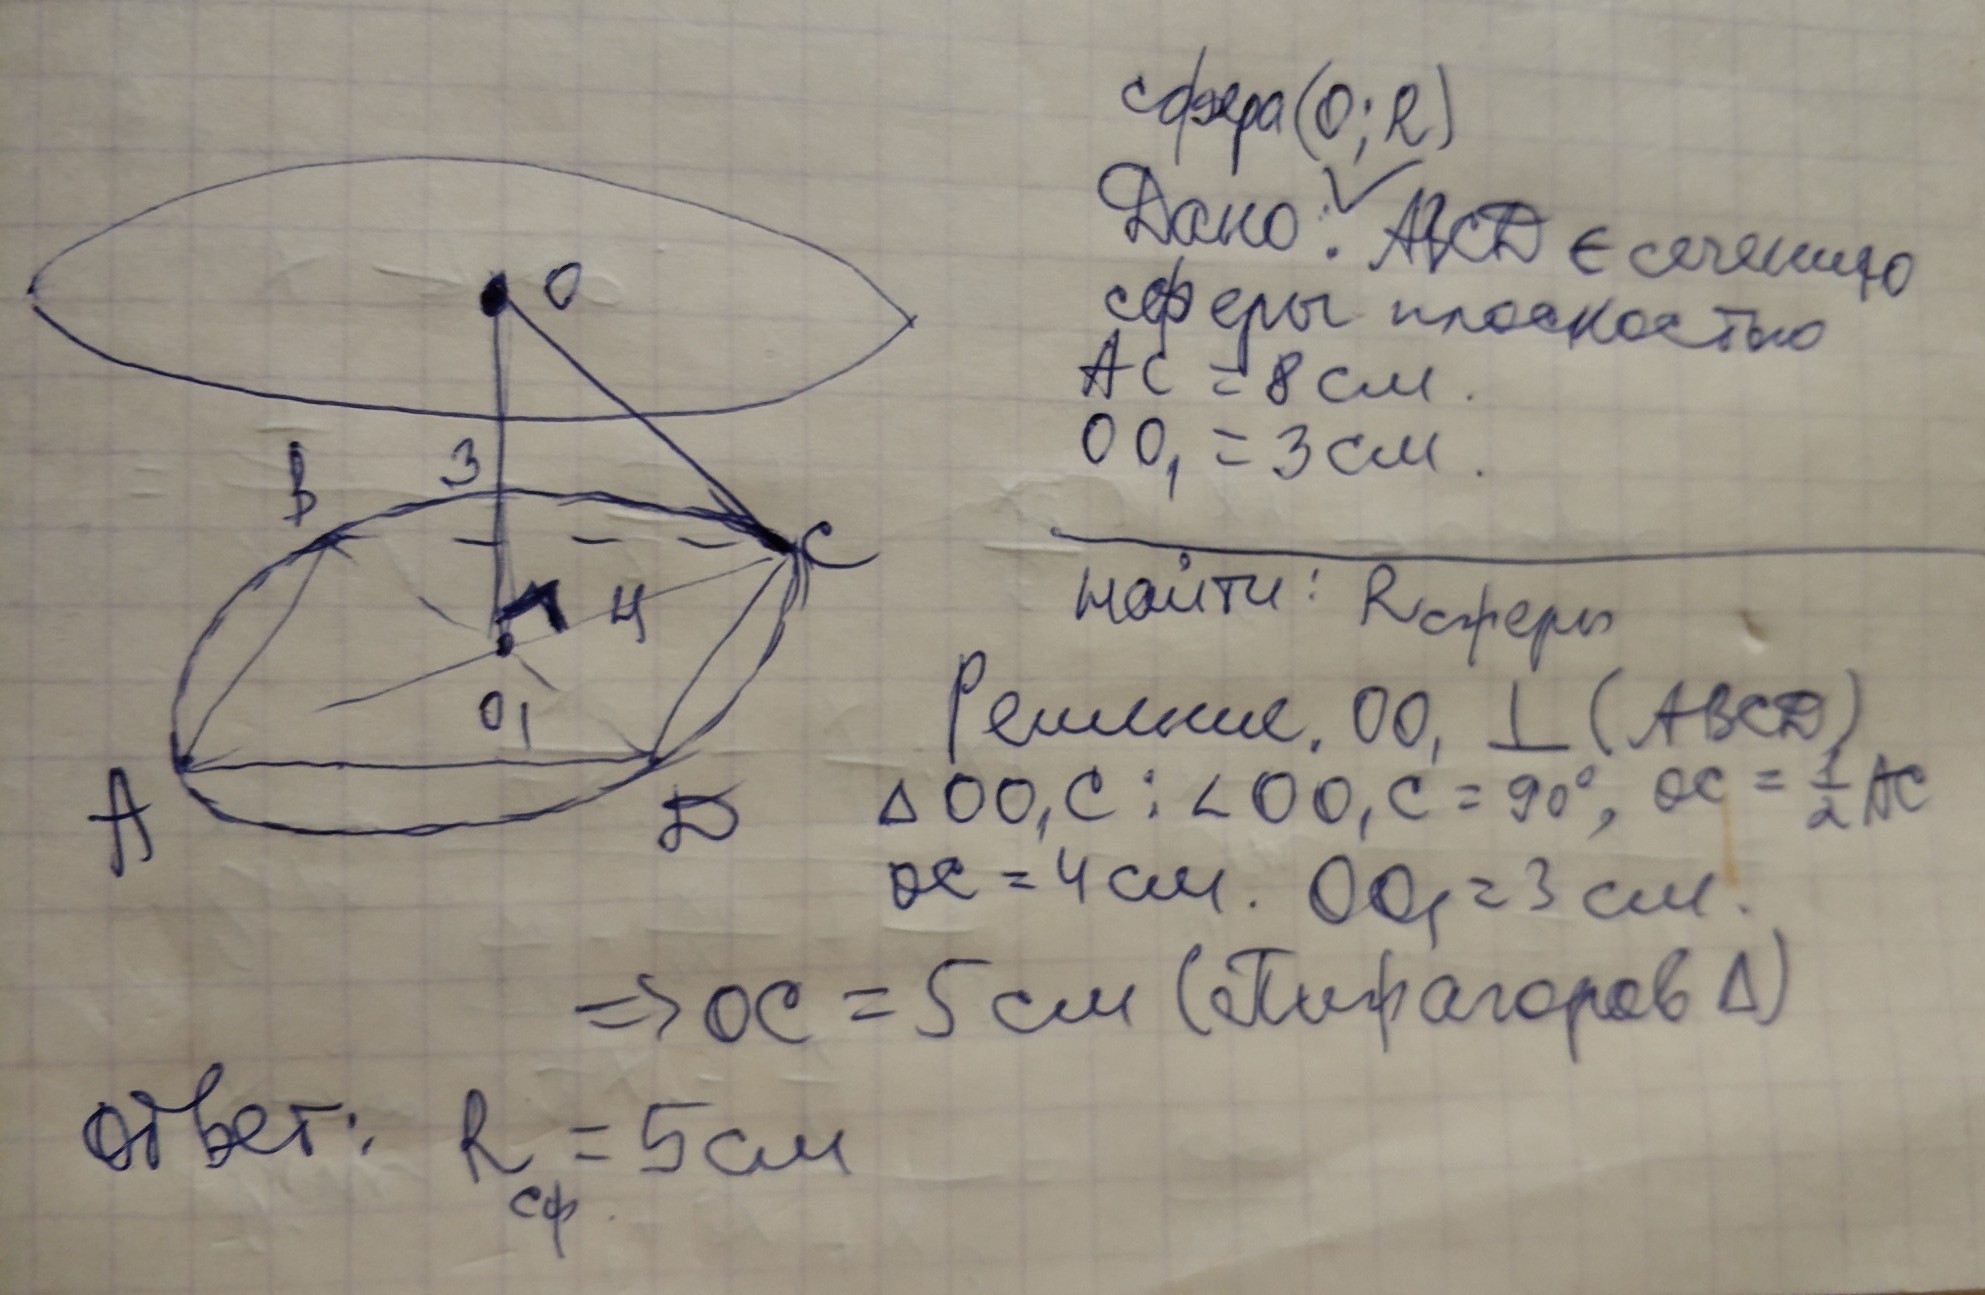 сфера (O; R)
Дано: ABCD ∈ сечению
сферы плоскостью
AC = 8 см.
OO₁ = 3 см.
найти: R сферы
Решение. OO₁ ⊥ (ABCD)
Δ OO₁C : ∠OO₁C = 90°, OC = 1/2 AC
OC = 4 см. OO₁ = 3 см.
=> OC = 5 см (Пифагоров Δ)
Ответ: R сф = 5 см
O
B
3
C
4
O₁
A
D